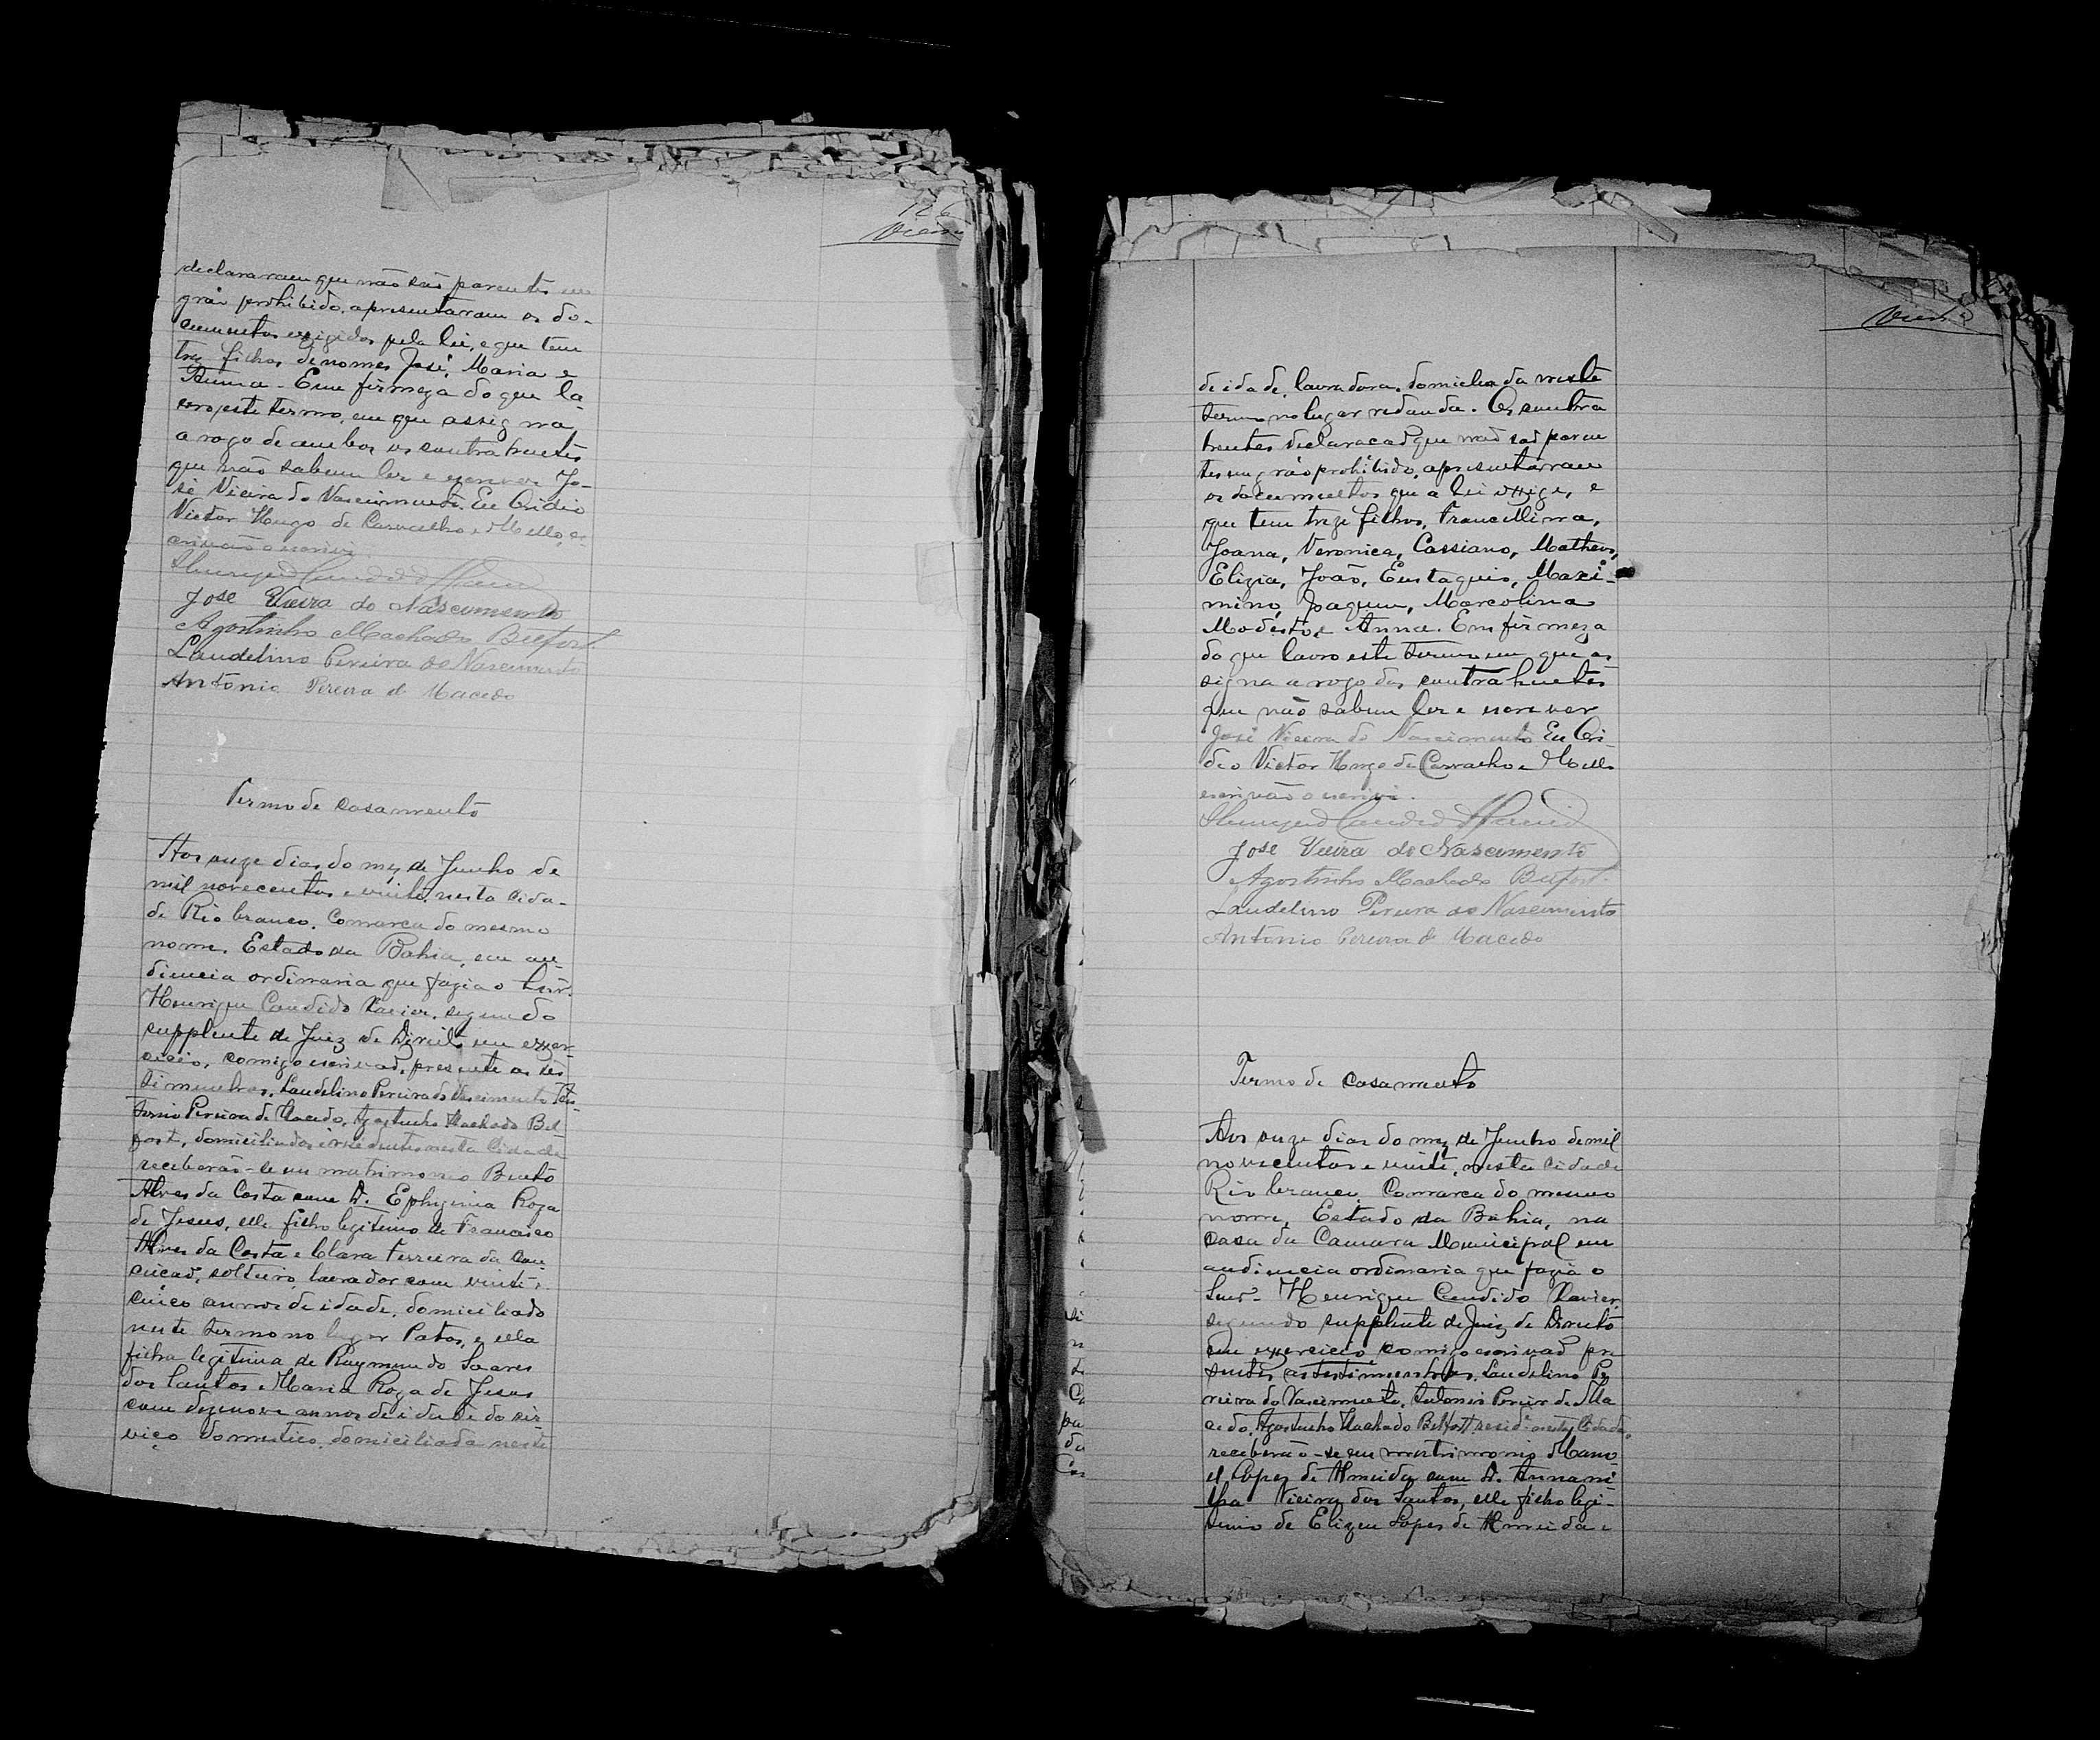 126
declararam que não são parentes em
gráo prohibido, apresentaram os do-
cumentos exigidos pela lei, e que tem
trez filhos de nomes José, Maria e
Anna - Em firmeza do que la-
vro este termo, em que assigna
a rogo de ambos os contrahentes
que não sabem ler e escrever Jo-
sé Vieira do Nascimento. Eu Ovidio
Victor Hugo de Carvalho e Mello, es-
crivão o escrivi.
José Vieira do Nascimento
Agostinho Machado Belfort
Laudelino Pereira do Nascimento
Antônio Pereira de Macedo
Termo de casamento
Aos onze dias do mez de Junho de
mil novecentos e vinte, nesta Cida-
de Rio branco, Comarca do mesmo
nome, Estado da Bahia, em au-
diencia ordinaria que fazia o
Henrique Candido Xavier, segundo
supplente de Juiz de Direito em exer-
cicio, comigo escrivaõ, presente as tes-
timunhas, Laudelino Pereira do Nascimento, An-
tonio Pereira de Macedo, Agostinho Machado Bel
fort, domiciliados e residentes nesta Cidade
receberão-se em matrimonio Bento
Alves da Costa com D. Ephigenia Roza
de Jesus, elle filho legitimo de Francisco
Alves da Costa e Clara Ferreira da Con
ceiçaõ, solteiro, lavrador com vinte e
cinco annos de idade, domiciliado
neste termo no lugar Patos, e ella
filha legitima de Raymundo Soares
dos Santos e Maria Roza de Jesus
com dezenove annos de idade do ser
viço domestico, domiciliada neste
de idade, lavradora, domiciliada neste
termo no lugar redonda. Os contra
hentes declaracaõ que naõ saõ paren
tes em gráo prohibido, apresentaram
os documentos que a lei exige, e
que tem treze filhos, Francellina,
Joana, Veronica, Cassiano, Matheus,
Elizia, João, Eustaquio, Maxi-
mino, Joaquim, Marcolina
Modesto e Anna. Em firmeza
do que lavro este termo em que as
signa a rogo dos contrahentes
que não sabem ler e escrever
José Vieira do Nascimento Eu Ovi-
dio Victor Hugo de Carvalho e Mello
escrivão o escrivi.
José Vieira do Nascimento
Agostinho Machado Belfort
Laudelino Pereira do Nascimento
Antonio Pereira de Macedo
Termo de casamento
Aos onze dias do mez de Junho de mil
novecentos e vinte, nesta Cidade
Rio branco, Comarca do mesmo
nome, Estado da Bahia, na
casa da Camara Municipal em
audiencia ordinaria que fazia o
Henrique Candido Xavier,
segundo supplente de Juiz de Direito
em exercicio comigo escrivaõ pre
sentes as testimunhas, Laudelino Pe
reira do Nascimento, Antonio Pereira de Ma
cedo, Agostinho Machado Belfort, resid. nesta Cidade,
receberão-se em matrimonio Mano
el Lopes de Almeida com D.
Vieira dos Santos, elle filho legi-
timo de Elizeu Lopes de Almeida e